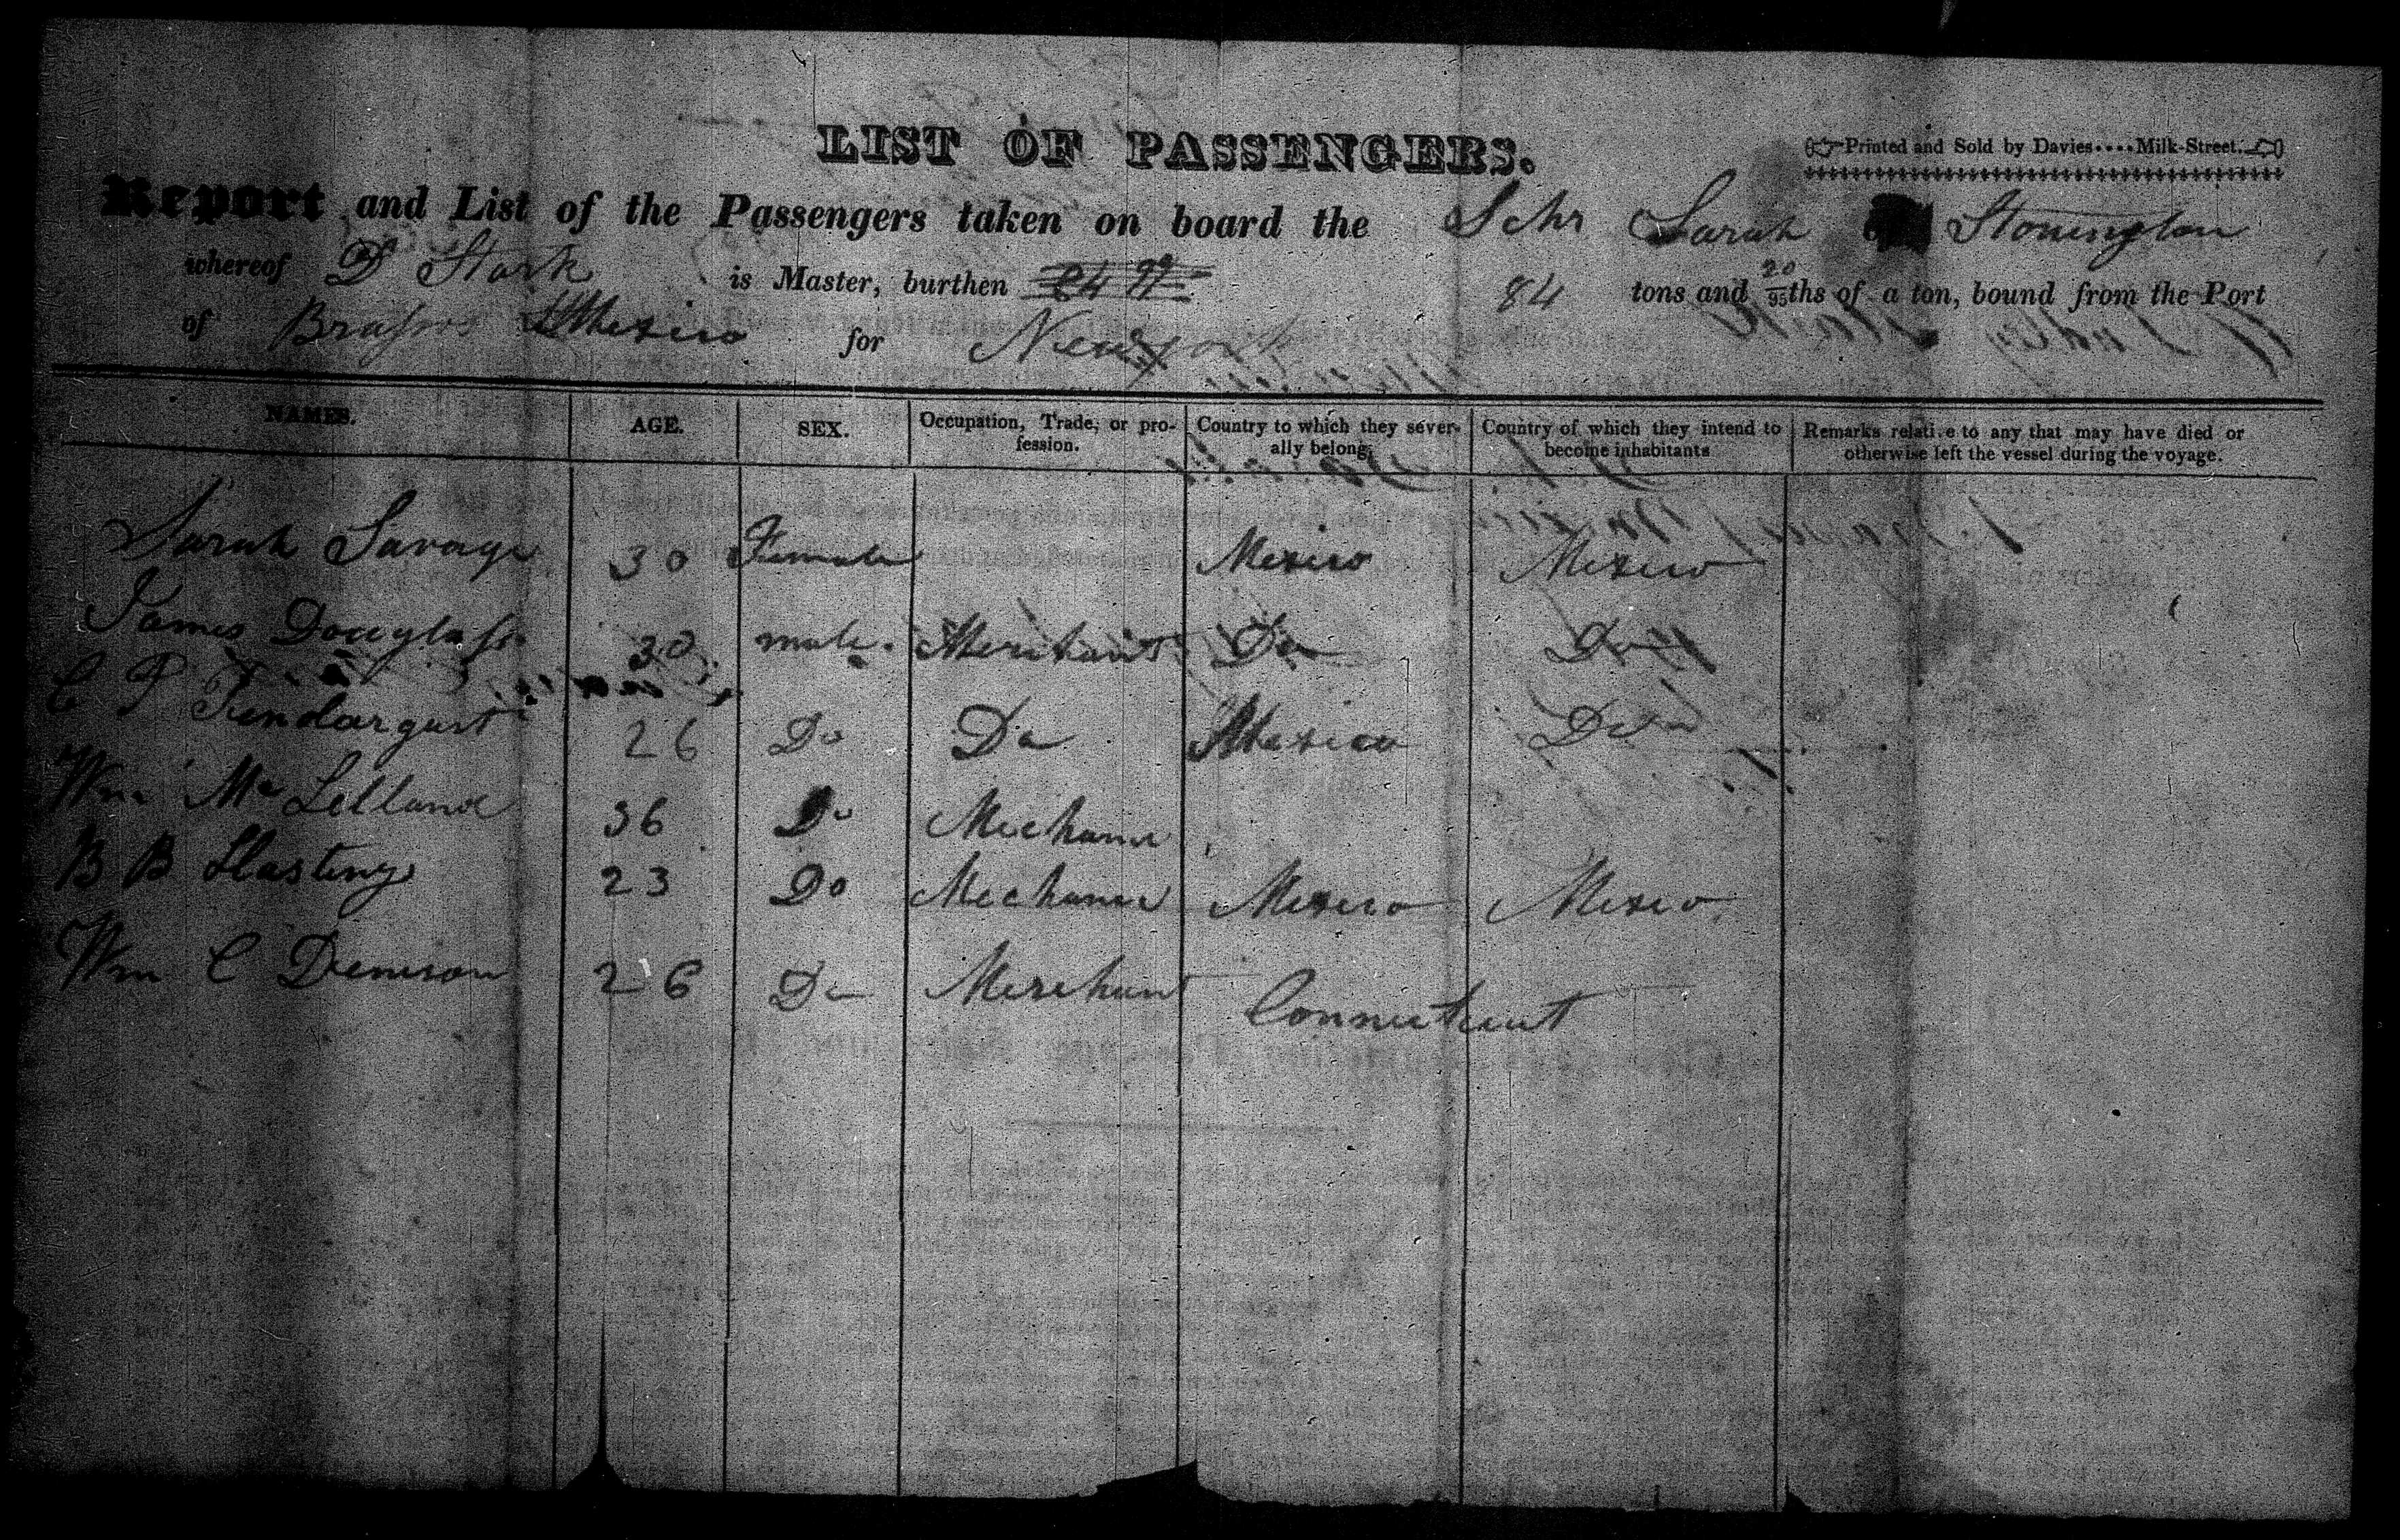 LIST OF PASSENGERS.
Printed and Sold by Davies....Milk-Street.
Report and List of the Passengers taken on board the Schr Sarah Stonington
whereof D Stark is Master, burthen 84 tons and 20/95ths of a ton, bound from the Port
of Brassos Mexico for New york
NAMES. AGE. SEX. Occupation, Trade, or profession. Country to which they severally belong. Country of which they intend to become inhabitants Remarks relative to any that may have died or otherwise left the vessel during the voyage.
Sarah Savage 30 Female Mexico Mexico
James Douglass 30 male. Merchant Do Do
C P 26 Do Do Mexico Do
Wm Mc Lelland 36 Do Mechanic
B B Hastings 23 Do Mechanic Mexico Mexico
Wm C Denison 26 Do Merchant Connecticut